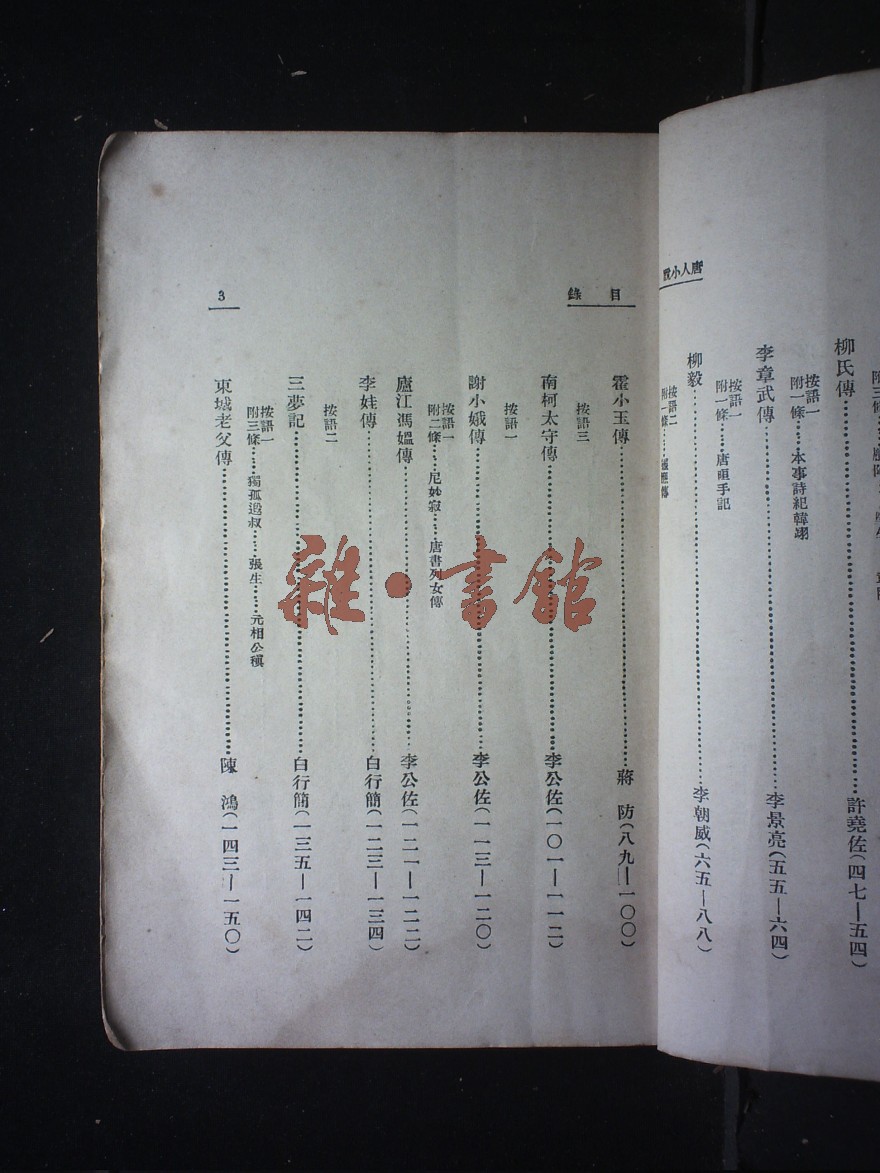 唐人小說
柳氏傳……許堯佐(四七—五四)
按語一
附一條……本事詩紀韓翊
李章武傳……李景亮(五五—六四)
按語一
附一條……唐暄手記
柳毅……李朝威(六五—八八)
按語二
附一條
目錄
霍小玉傳……蔣 防(八九—一〇〇)
按語三
南柯太守傳……李公佐(一〇一—一一二)
按語一
謝小娥傳……李公佐(一一三—一二〇)
按語一
附二條……尼妙寂……唐書列女傳
廬江馮媼傳……李公佐(一二一—一二二)
李娃傳……白行簡(一二三—一三四)
按語二
三夢記……白行簡(一三五—一四二)
按語一
附三條……獨孤遐叔……張生……元相公稹
東城老父傳……陳 鴻(一四三—一五〇)
3
雜·書館